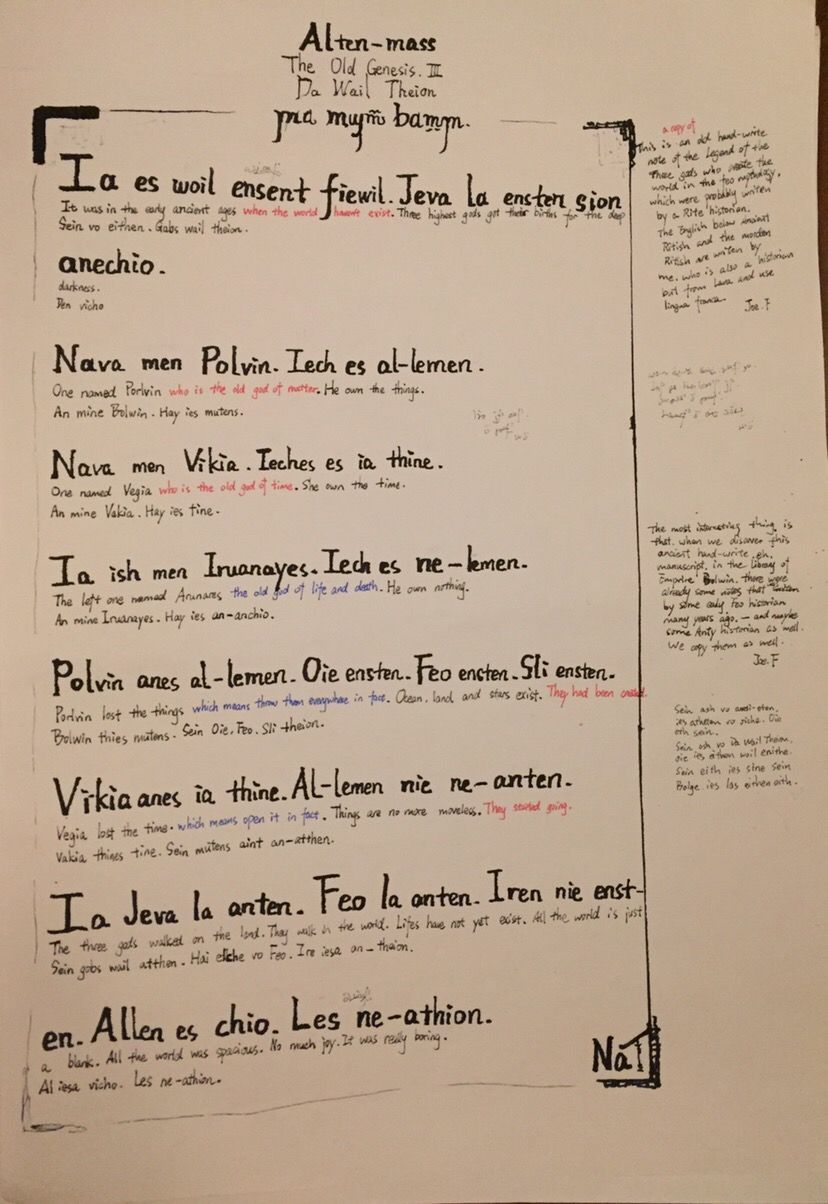 Alten-mass
The Old Genesis. III
Da Wail Theion
Ia es woil ensent fiewil. Jeva la ensten sion
It was in the early ancient ages when the world haven't exist. Three highest gods got their births for the deep
Sein vo eithen. Gabs wail theion.
anechio.
darkness.
Den vicho
Nava men Polvin. Iech es al-lemen.
One named Porlvin who is the old god of matter. He own the things.
An mine Bolwin. Hay ies mutens.
Nava men Vikia. Ieches es ia thine.
One named Vegia who is the old god of time. She own the time.
An mine Vakia. Hay ies tine.
Ia ish men Iruanayes. Iech es ne-lemen.
The left one named Arunares the old god of life and death. He own nothing.
An mine Iruanayes. Hay ies an-anchio.
Polvin anes al-lemen. Oie ensten. Feo ensten. Sli ensten.
Porlvin lost the things which means throw them everywhere in fact. Ocean, land and stars exist. They had been created.
Bolwin thies mutens. Sein Oie, Feo, Sli theion.
Vikia anes ia thine. Al-lemen nie ne-anten.
Vegia lost the time. which means open it in fact. Things are no more moveless. They started going.
Vakia thines tine. Sein mutens aint an-atthen.
Ia Jeva la anten. Feo la anten. Iren nie enst-
The three gods walked on the land. They walk in the world. Lifes have not yet exist. All the world is just
Sein gobs wail atthen. Hai elche vo Feo. Ire iesa an-theion.
en. Allen es chio. Les ne-athion.
a blank. All the world was spacious. No much joy. It was really boring.
Al iesa vicho. Les ne-athion.
Na
a copy of
This is an old hand-write
note of the Legend of the
Three gods who create the
world in the Feo mythology,
which were probably writen
by a Rite historian.
The English below Ancient
Ritish and the morden
Ritish are writen by
me, who is also a historian
but from Lava and use
lingua franca.
Joe. F
The most interestring thing is
that, when we discover this
ancient hand-write, eh,
manuscript, in the library of
Empire Bolwin, there were
already some notes that written
by some early Feo historian
many years ago. — and maybe
some Anty historian as well.
We copy them as well.
Joe. F
Sein ash vo
ies athelon vo giche. Oie
oth sein.
Sein ash vo ia wail Theion,
oie ies eithon wail enithe.
Sein eith ies sine sein
Bolge ies las eithen oith.